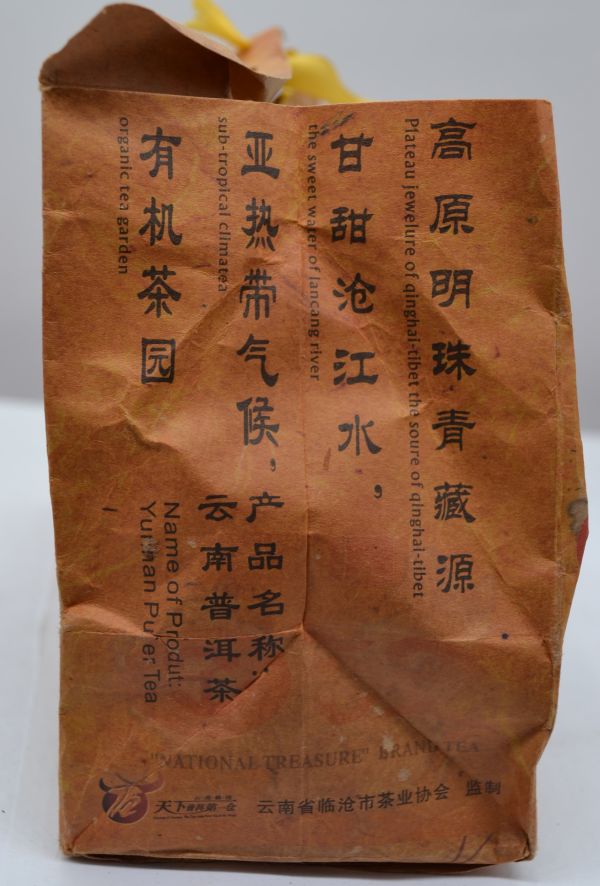 高原明珠青藏源
Plateau jewelure of qinghai-tibet the soure of qinghai-tibet
甘甜沧江水，
the sweet water of lancang river
亚热带气候，
sub-tropical climatea
有机茶园
organic tea garden
产品名称：
云南普洱茶
Name of Produt:
Yunnan Pu'er Tea
"NATIONAL TREASURE" BRAND TEA
天下普洱第一仓
云南省临沧市茶业协会 监制